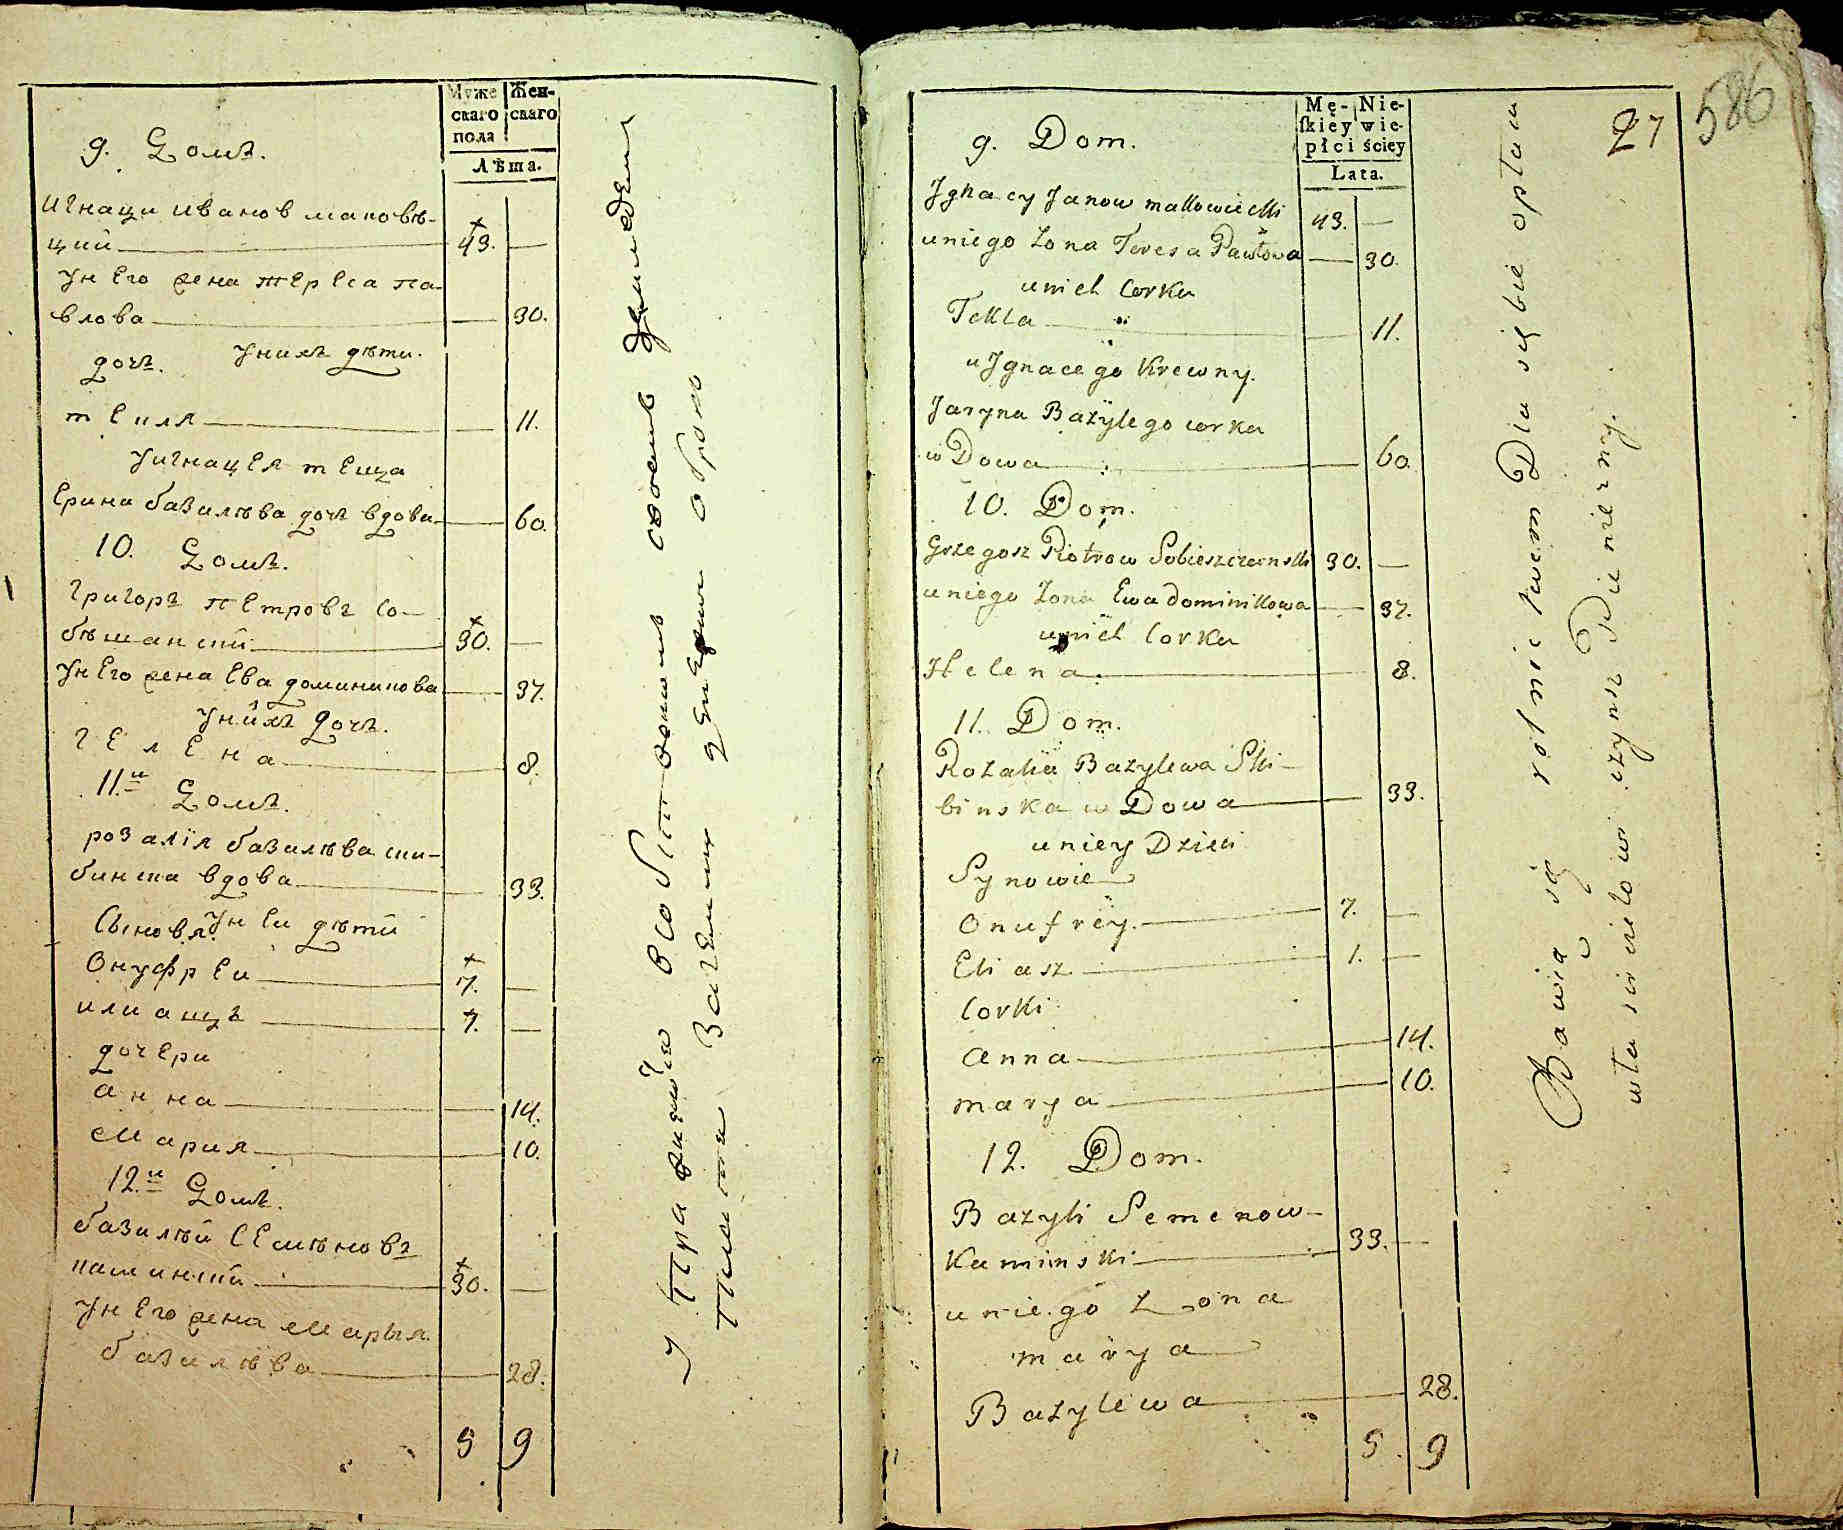 Муже
скаго
пола
Жен-
скаго
Лѣта.
9. Домъ.
Игнаци Иванов маковѣ-
цкий 43. —
Ун Его жена тЕрЕса па-
влова — 30.
Унихъ дѣти.
дочъ.
тЕкля — 11.
УигнацЕя тЕща
Ерина базилѣва дочъ вдова — 60.
10. Домъ.
Григоръ пЕтровъ Со-
бѣшанский 30. —
Ун Его жена Ева доминикова — 37.
Унихъ дочъ.
гЕлЕна — 8.
11.й Домъ.
розалія базилѣва ски-
бинска вдова — 33.
Ун Еи дѣти
Сыновя.
ОнуфрЕи 7. —
илиашъ 7. —
дочЕри
анна — 14.
Мария — 10.
12.й Домъ.
базилѣй СЕмѣновъ
каминский 30. —
Ун Его жена Марыя
базилѣва — 28.
5 9
27
586
Mę-
skiey
płci
Nie-
wie-
ściey
Lata.
9. Dom.
Jgnacy Janow makowiecki 43. —
uniego Zona Teresa Pawłowa — 30.
unich Corka
Tekla — 11.
uJgnacego Krewny.
Jaryna Bazylego corka
wDowa — 60
10. Dom.
Grzegosz Piotrow Sobieszczanski 30. —
uniego Zona Ewa dominikowa — 37.
unich Corka
Helena. — 8.
11. Dom.
Rozalia Bazylewa Ski-
binska wDowa — 33.
uniey Dzieci
Synowie
Onufrey. 7. —
Eliasz 1. —
Corki
Anna — 14.
marya — 10.
12. Dom.
Bazyli Semenow-
Kaminski 33. —
uniego Zona
marya
Bazylewa — 28.
5 9
Bawią się rolnictwem Dla siebie opłacaią
właścicielowi czynsz Pienieżny.